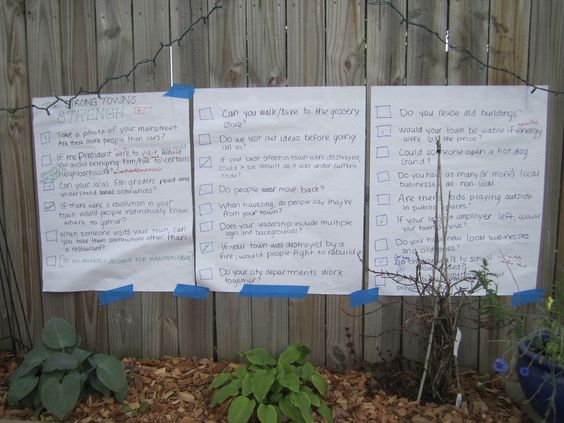 THE STRONG TOWNS
STRENGH TEST
Take a photo of your mainstreet.
Are there more people than cars?
If the President were to visit would
you avoid bringing him/her to certain
neighborhoods?
Can your local 5th graders read and
understand local ordinances?
If there were a revolution in your
town would people instinctively know
where to gather?
When someone visits your town, can
you take them somewhere other than
a restaurant?
Do you honestly account for maintenance
Can you walk/bike to the grocery
store?
Do we test out ideas before going
all in?
If your best street in town were destroyed,
could it be rebuilt as it was under current
code?
Do people ever move back?
When traveling, do people say they're
from your town?
Does your leadership include multiple
ages and backgrounds?
If your town was destroyed by a
fire, would people fight to rebuild
Do your city departments work
together?
Do you reuse old buildings
Would your town be viable if energy
were the price?
Could someone open a hot dog
stand?
Do you have as many (or more) local
businesses as non-local
Are there kids playing outside
in public spaces?
If your largest employer left, would
your town survive?
Do you have new local businesses
and old
to school